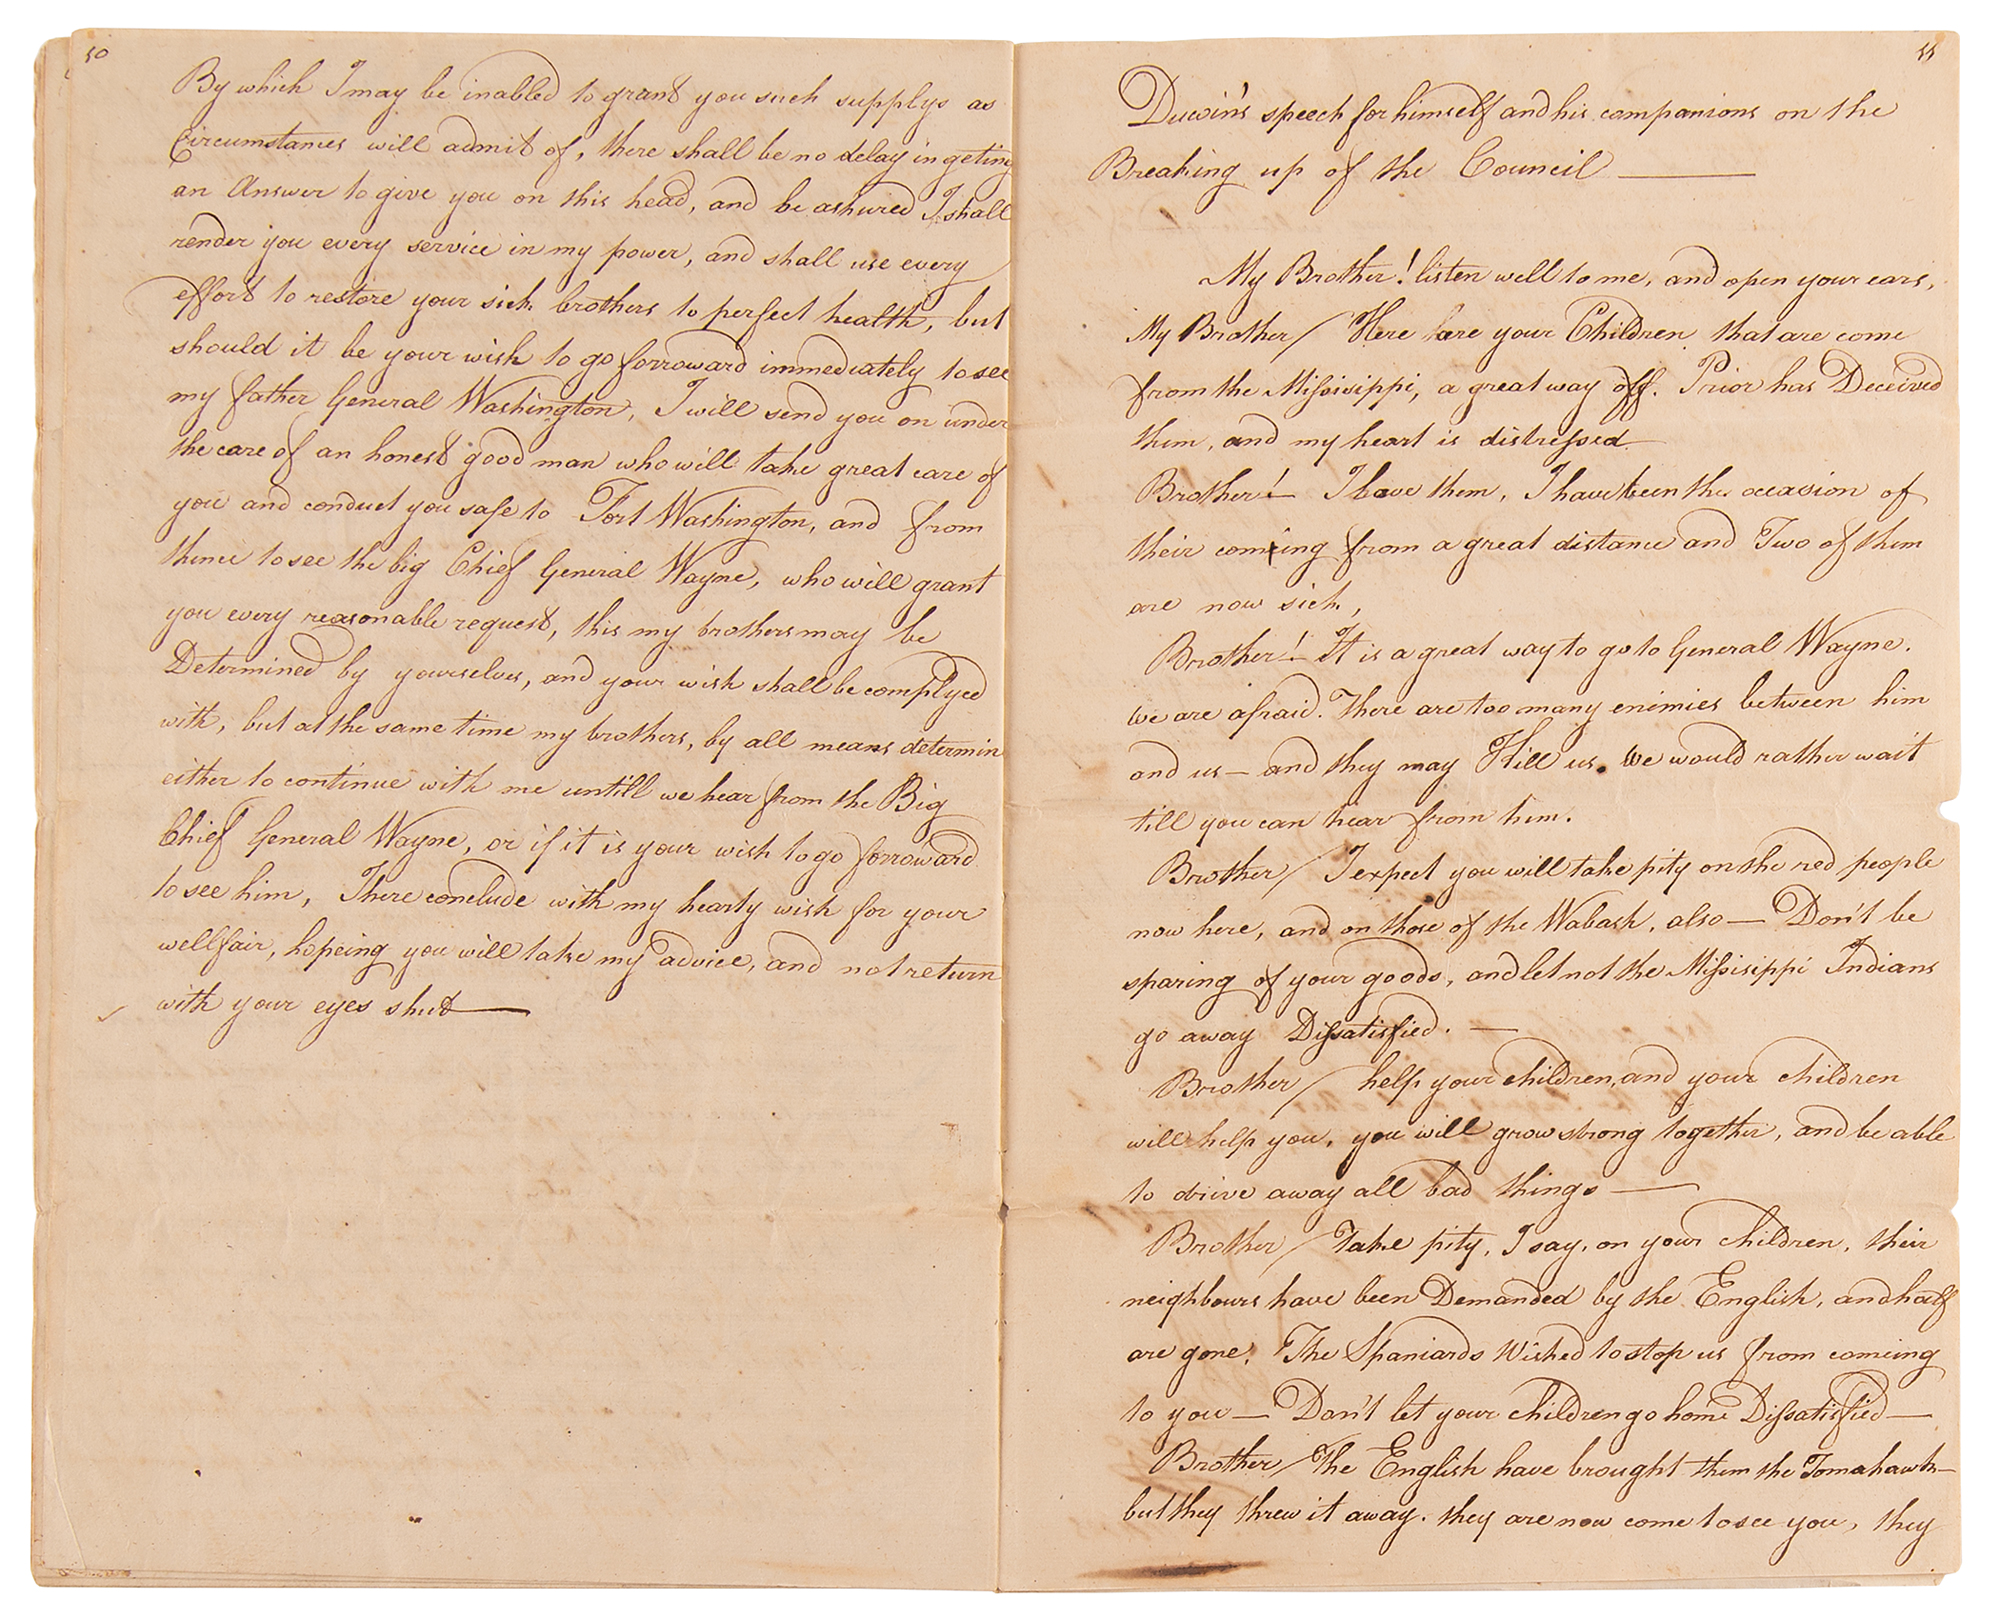 50
By which I may be inabled to grant you such supplys as
Circumstances will admit of, there shall be no delay in geting
an Answer to give you on this head, and be ashured I shall
render you every service in my power, and shall use every
effort to restore your sick brothers to perfect health, but
should it be your wish to go forroward immediately to see
my father General Washington, I will send you on under
the care of an honest good man who will take great care of
you and conduct you safe to Fort Washington, and from
thence to see the big Chief General Wayne, who will grant
you every reasonable request, this my brothers may be
Determined by yourselves, and your wish shall be complyed
with, but at the same time my brothers, by all means determin
either to continue with me untill we hear from the Big
Chief General Wayne, or if it is your wish to go forroward
to see him, I here conclude with my hearty wish for your
wellfair, hopeing you will take my advice, and not return
with your eyes shut —
Ducoin's speech for himself and his companions on the
Breaking up of the Council —
My Brother! listen well to me, and open your ears,
My Brother / Here are your Children that are come
from the Missisippi, a great way off. Prior has Deceived
them, and my heart is distressed
Brother! — I love them, I have been the occasion of
their coming from a great distance and Two of them
are now sick,
Brother! — It is a great way to go to General Wayne.
We are afraid. There are too many enimies between him
and us — and they may Kill us. We would rather wait
till you can hear from him.
Brother / I expect you will take pity on the red people
now here, and on those of the Wabash, also — Don't be
sparing of your goods, and let not the Missisippi Indians
go away Dissatisfied. —
Brother / help your children, and your children
will help you, you will grow strong together, and be able
to drive away all bad things —
Brother / Take pity, I say, on your children, their
neighbours have been Demanded by the English, and half
are gone. The Spaniards Wished to stop us from comeing
to you — Don't let your children go home Dissatisfied —
Brother / The English have brought them the Tomahawk —
but they threw it away. they are now come to see you, they